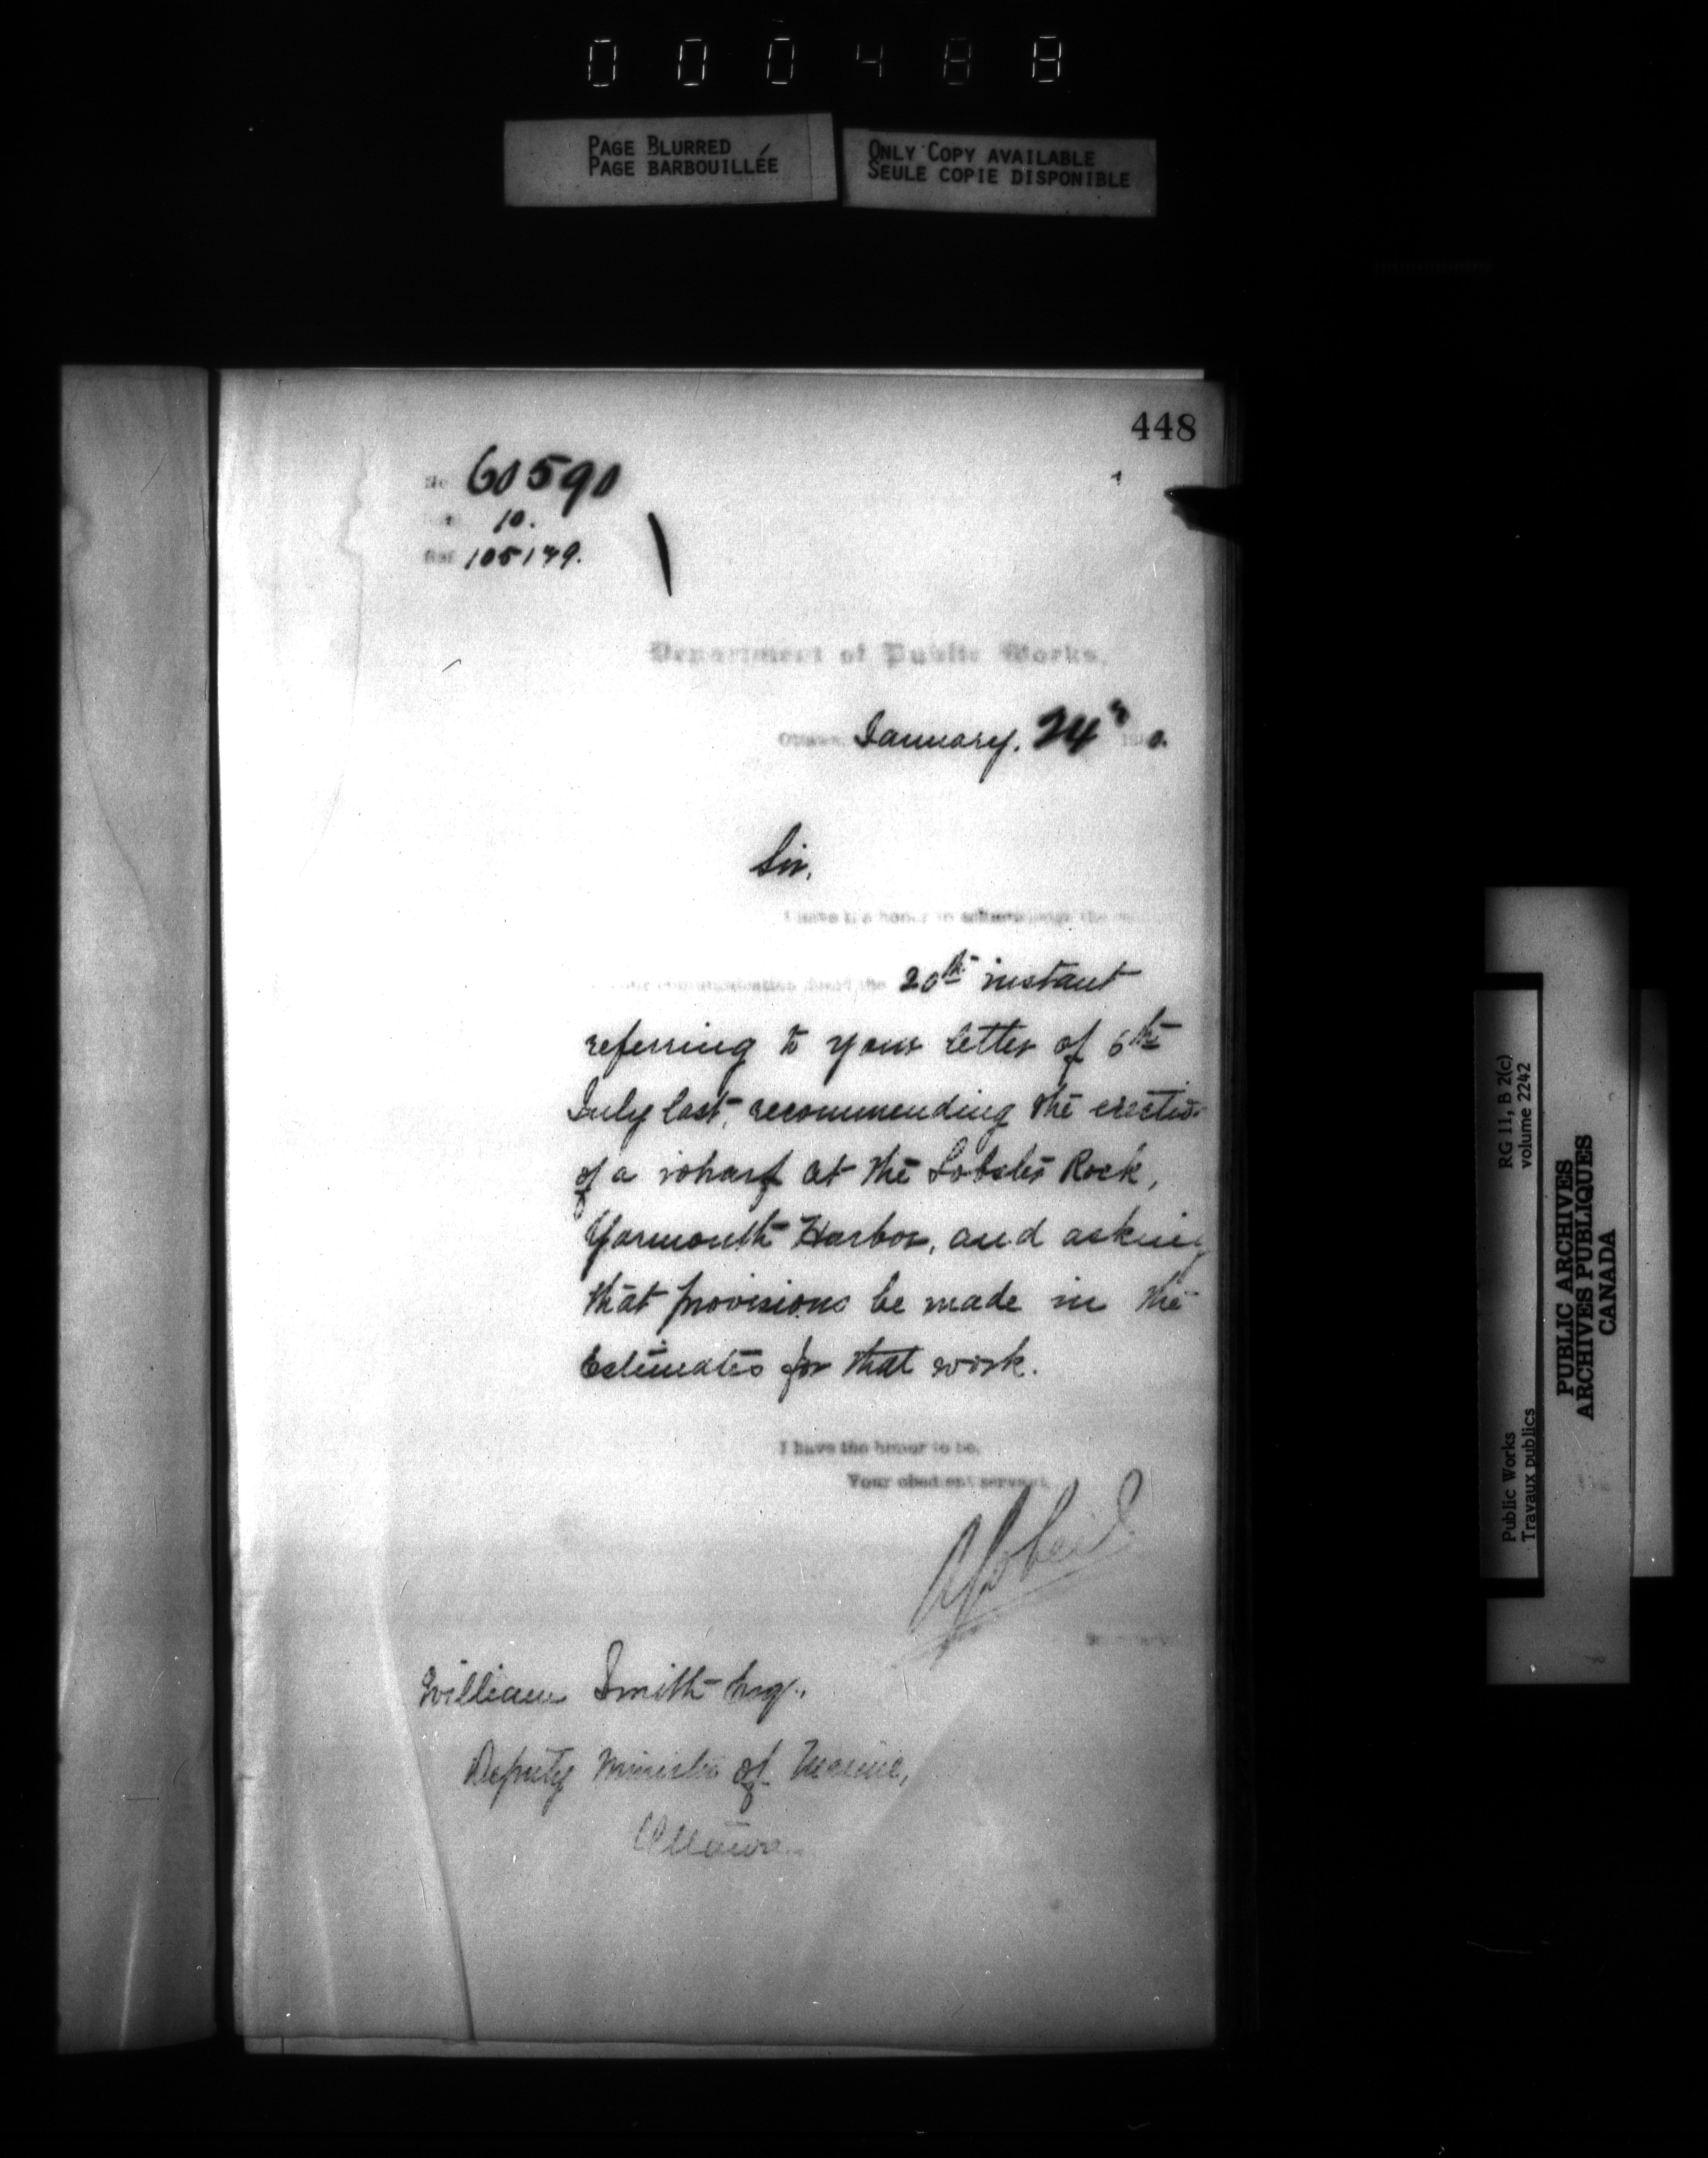 000488
PAGE BLURRED
PAGE BARBOUILLÉE
ONLY COPY AVAILABLE
SEULE COPIE DISPONIBLE
448
No 60590
10.
Ref 105179.
Department of Public Works,
Ottawa, January. 24th 18 0.
Sir,
I have the honor to acknowledge the
your communication dated the 20th instant
referring to your letter of 6th
July last, recommending the erection
of a wharf at the Lobster Rock,
Yarmouth Harbor, and asking
that provisions be made in the
Estimates for that work.
I have the honor to be,
Your obedient servant,
A Gobeil
Secretary
William Smith Esq.,
Deputy Minister of Marine,
Ottawa.
Public Works
Travaux publics
RG 11, B 2(c)
volume 2242
PUBLIC ARCHIVES
ARCHIVES PUBLIQUES
CANADA